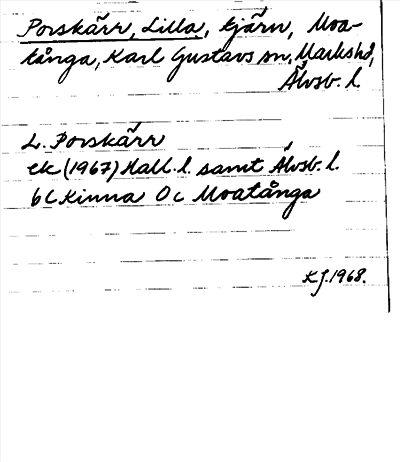 Porskärr, Lilla, tjärn, Moa-
tånga, Karl Gustavs sn, Marks hd,
Älvsb. l.
L. Porskärr
ek (1967) Hall. l. samt Älvsb. l.
6C Kinna 0c Moatånga
KJ. 1968.